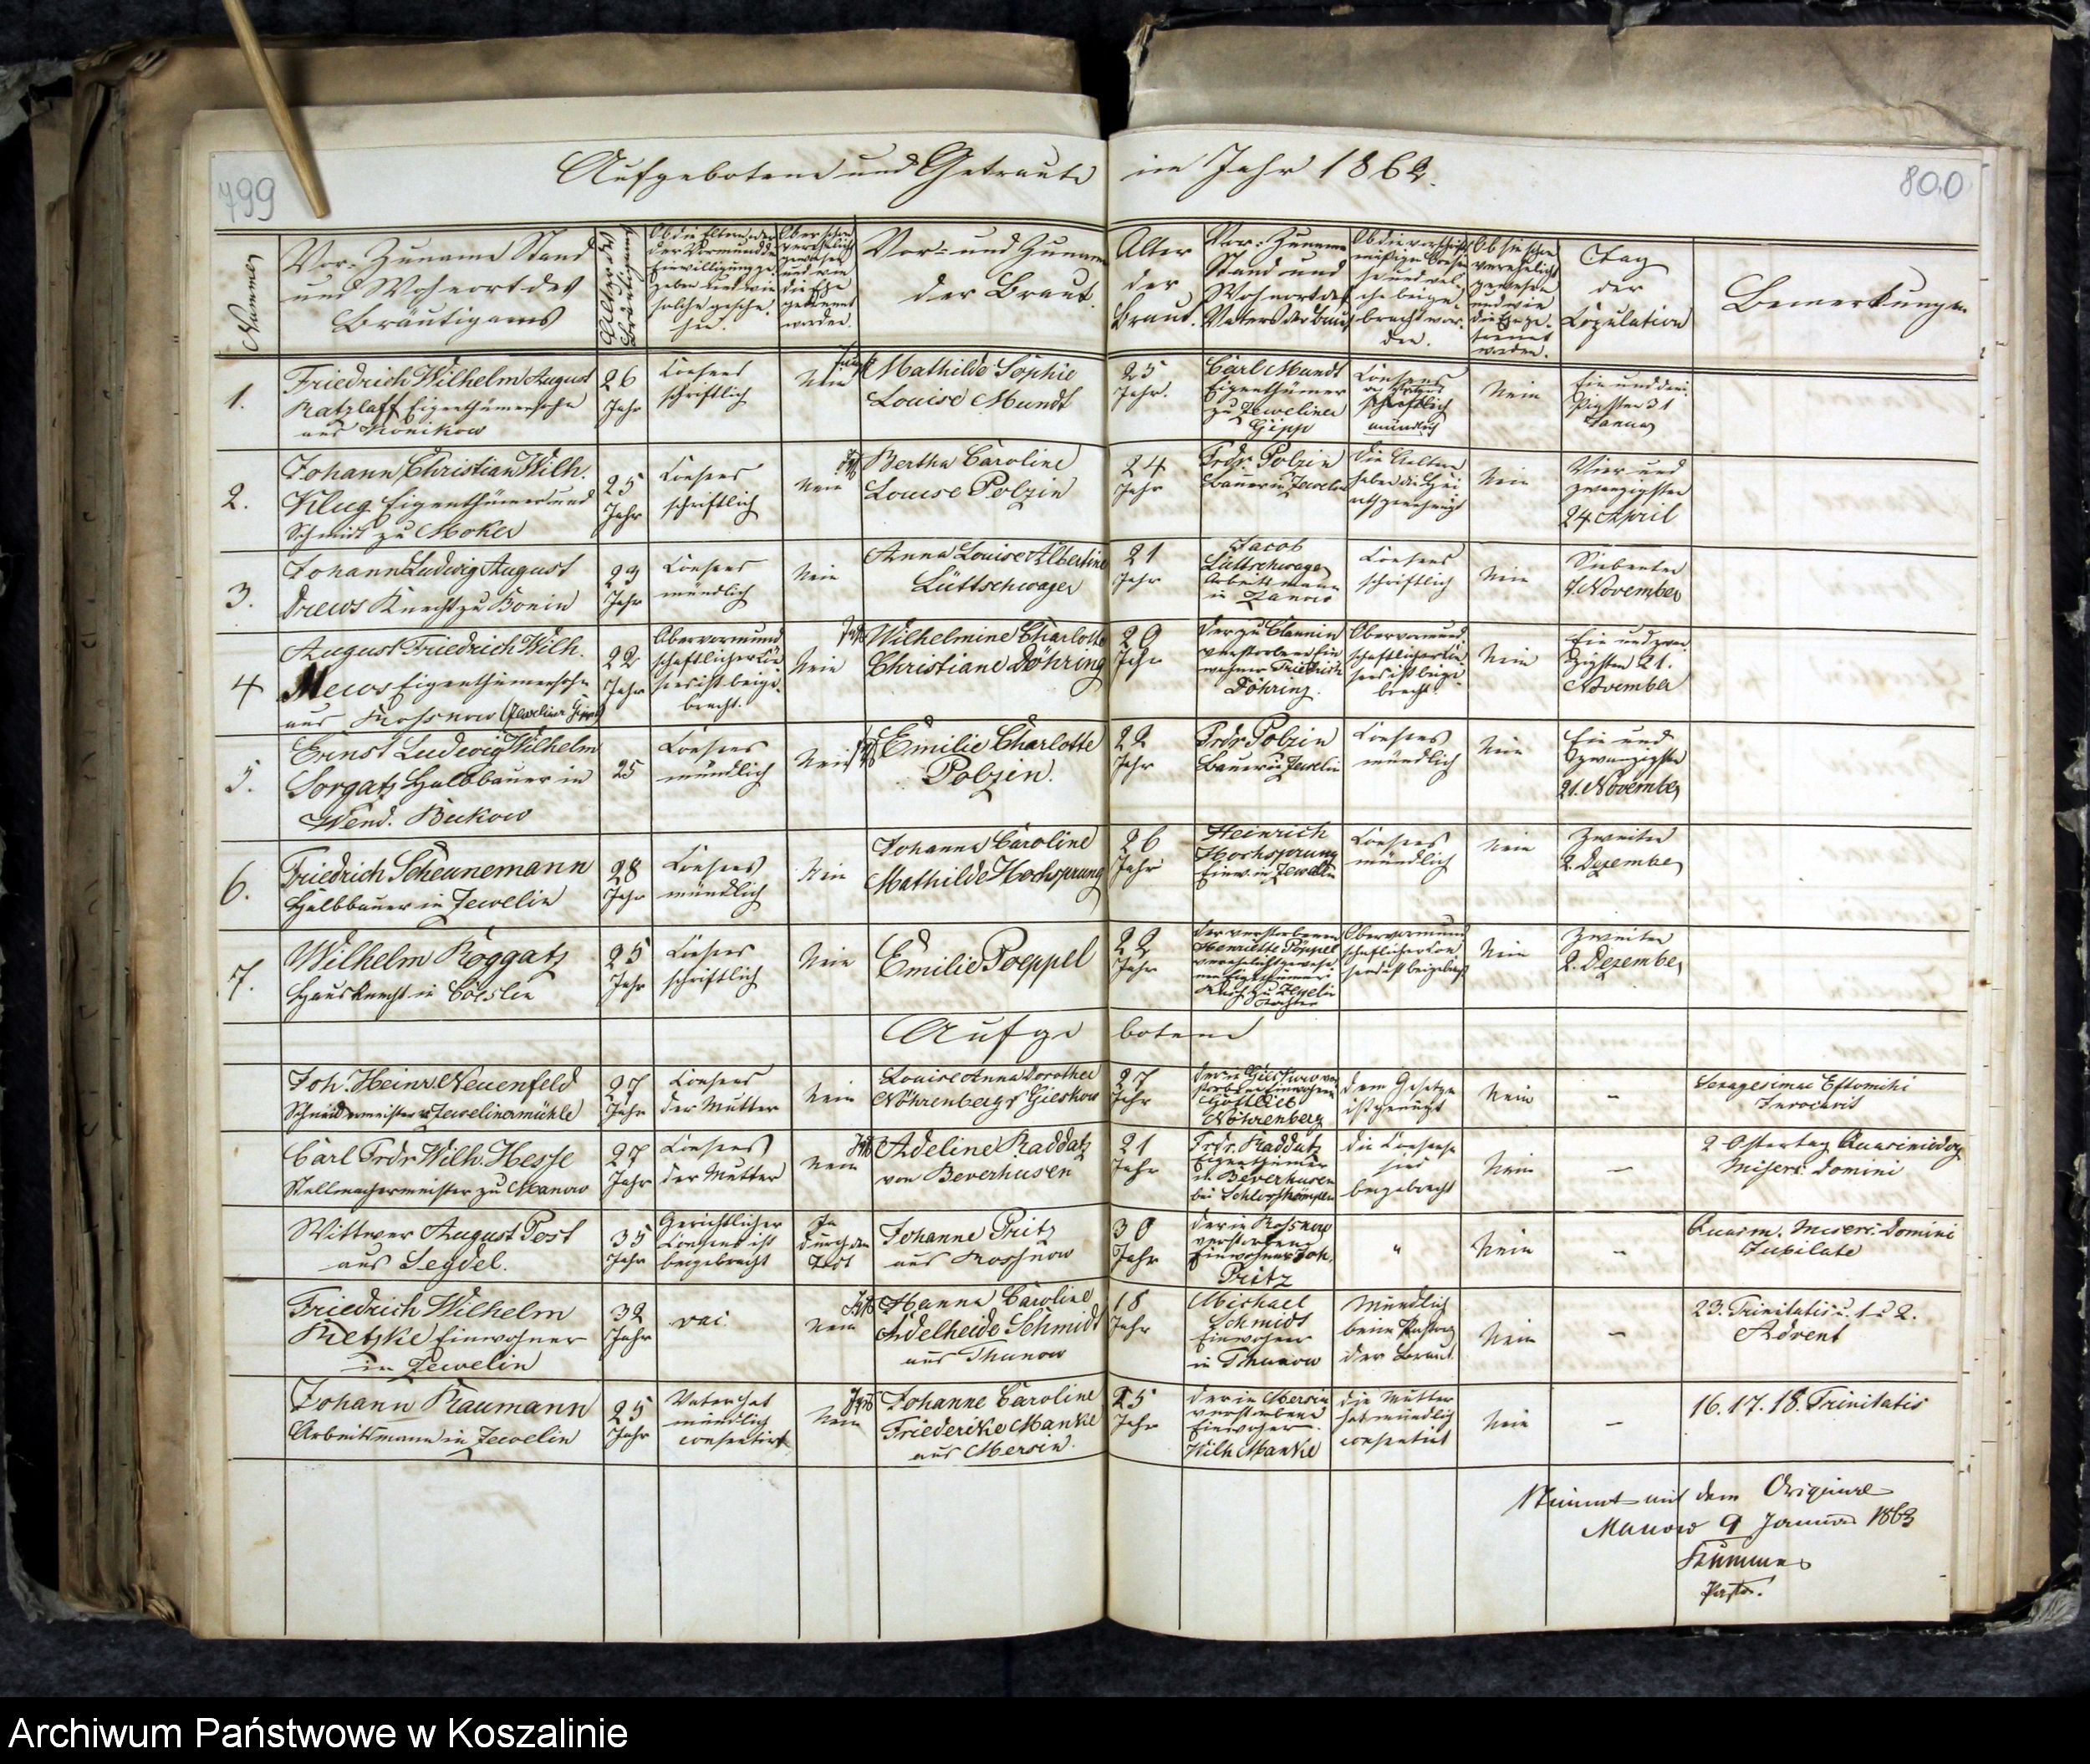 799
800
Aufgebotene und Getraute im Jahr 1862.
Nummer
Vor- Zuname Stand
und Wohnort des
Bräutigams
Alter des
Bräutigams
Ob die Eltern oder
der Vormund die
Einwilligung ge-
geben und wie
solche gesche-
hen.
Ob er schon
verehelicht
gewesen
und wie
die Ehe
getrennt
worden.
Vor- und Zuname
der Braut.
Alter
der
Braut.
Vor- Zuname
Stand und
Wohnort des
Vaters der Braut
Ob sie schon
verehelicht
gewesen
und wie
die Ehe ge-
trennt
worden.
Tag
der
Copulation
Bemerkungen
1.
Friedrich Wilhelm August
Ratzlaff Eigenthümersohn
aus Konikow
26
Jahr
Consens
schriftlich
Nein
Mathilde Sophie
Louise Mundt
25
Jahr.
Carl Mundt
Eigenthümer
zu Zeweliner
Gipp
Consens
schriftlich
mündlich
Nein
Ein und drei-
ßigsten 31
Januar
2.
Johann Christian Wilh.
Klug Eigenthümer und
Schmidt zu Moker
25
Jahr
Consens
schriftlich
Nein
Bertha Caroline
Louise Polzin
24
Jahr
Frdr. Polzin
Bauer in Zewelin
Die Aeltern
haben die Hei-
rath genehmigt
Nein
Vier und
zwanzigsten
24 April
3.
Johann Ludwig August
Drews Knecht zu Bonin
23
Jahr
Consens
mündlich
Nein
Anna Louise Albertine
Lüttschwager
21
Jahr
Jacob
Lüttschwager
Arbeitsmann
in Zanow
Consens
schriftlich
Nein
Siebenten
7. November
4
August Friedrich Wilh.
Mews Eigenthümersohn
aus Rossnow (Zeweliner Gipp)
22
Jahr
Obervormund-
schaftlicher Con-
sens ist beige-
bracht.
Nein
Wilhelmine Charlotte
Christiane Döhring
29
Jahr
Der zu Clannin
verstorbene Ein-
wohner Friedrich
Döhring.
Obervormund-
schaftlicher Con-
sens ist beige-
bracht
Nein
Ein und zwan-
zigsten 21.
November
5.
Ernst Ludewig Wilhelm
Sorgatz Halbbauer in
Wend. Buckow
25
Consens
mündlich
Nein
Emilie Charlotte
Polzin.
22
Jahr
Frdr. Polzin
Bauer in Zewelin
Consens
mündlich
Nein
Ein und
zwanzigsten
21. November
6.
Friedrich Scheunemann
Halbbauer in Zewelin
28
Jahr
Consens
mündlich
Nein
Johanne Caroline
Mathilde Hochsprung
26
Jahr
Heinrich
Hochsprung
Einw. in Zewelin
Consens
mündlich
Nein
Zweiten
2. Dezember
7.
Wilhelm Roggatz
Hausknecht in Coeslin
25
Jahr
Consens
schriftlich
Nein
Emilie Poeppel
22
Jahr
Der verstorbenen
Henriette Pöppel
Zewelin
Tochter
Obervormund-
schaftlicher Con-
sens ist beigebracht
Nein
Zweiten
2. Dezember
Aufgebotene
Joh. Heinr. Neuenfeld
Schneidermeister Zewelinermühle
27
Jahr
Consens
der Mutter
Nein
Louise Anna Dorothea
Nöhrenberg Gieskow
27
Jahr
Gottlieb
Nöhrenberg
dem Gesetze
ist genügt
Nein
–
Sexagesimae Estomihi
Invocavit
Carl Frdr. Wilh. Hesse
Stellmachermeister zu Manow
27
Jahr
Consens
der Mutter
Nein
Adeline Raddatz
von Beverhusen
21
Jahr
Frdr. Raddatz
Eigenthümer
Beverhusen
bei Schlosskämpen
die Consense
sind
beigebracht
Nein
–
2 Ostertag Quasimodog
Miseri: Domini
Wittwer August Post
aus Seydel.
35
Jahr
Gerichtlicher
Consens ist
beigebracht
Ja
durch den
Tod
Johanne Pritz
aus Rossnow
30
Jahr
der in Rossnow
verstorbene
Einwohner Joh.
Pritz
"
Nein
–
Quasm. Miseri: Domini
Jubilate
Friedrich Wilhelm
Rietzke Einwohner
in Zewelin
32
Jahr
Nein
Hanna Caroline
Adelheide Schmidt
aus Thunow
18
Jahr
Michael
Schmidt
Einwohner
in Thunow
Mündlich
beim Pastor
der Braut
Nein
–
23. Trinitatis u. 1 u 2.
Advent
Johann Raumann
Arbeitsmann in Zewelin
25
Jahr
Vater hat
mündlich
consentirt
Nein
Johanne Caroline
Friedericke Manke
aus Mersin.
25
Jahr
der in Mersin
verstorbene
Einwohner
Wilh. Manke
die Mutter
hat mündlich
consentirt
Nein
–
16. 17. 18. Trinitatis
Stimmt mit dem Originale
Manow 9 Januar 1863
Pastor.
Archiwum Państwowe w Koszalinie